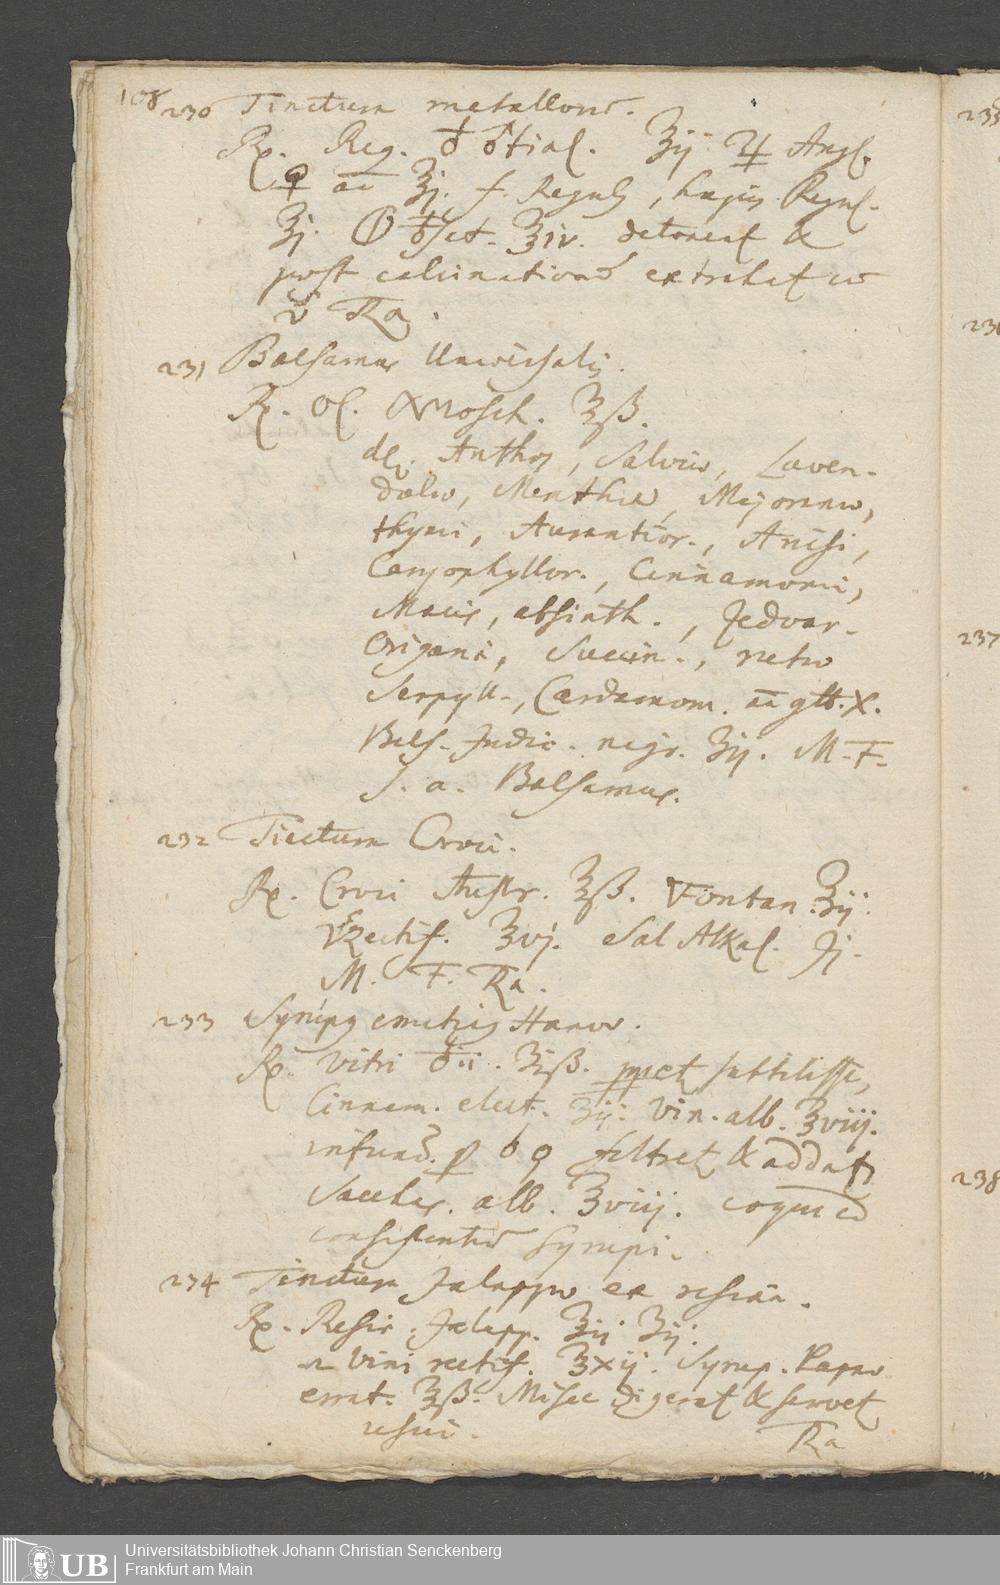 108
230 Tinctura metallorū.
Rp. Reg. ♁ ♂tial. ℥ij ♃ Angl.
♀ aā ℥j. f. Reguls, hujus Regul.
℥j. ♁set. ℥iv. detonent &
post calcinationē extrahat cū
Ra.
231 Balsamus Universalis.
Rp. Ol. Mosch. ℥ß.
de. Anthos, Salviæ, Laven-
dulæ, Menthæ, Majoranæ,
thymi, Aurantior., Anisi,
Caryophyllor., Cinnamomi,
Macis, absinth., Zedoar.
Origani, Succin., rutæ
Serpyll., Cardamom. aā gtt. X.
Bals. Indic. nigr. ℥ij. M. F.
S. a. Balsamus.
232 Tinctura Croci.
Rp. Croci Austr. ℥ß. ▽Fontan. ℥ij.
Rectif. ℥vj. Sal Alkal. ℈j.
M. F. Ra.
233 Syrupus emeticus
Rp. Vitri ♁ii. ℨiß. ppct subtiliss.,
Cinnam. elect. ℨij. Vin. alb. ℥viij.
infund. p 6 filtret & addat
Sacchar. alb. ℥viij. coqu ad
consistentiā Syrupi.
234 Tinctura Jalappæ ex resina.
Rp. Resin. Jalapp. ℨij
Vini rectif. ℥xij. Syrup. Papav
errat. ℥ß. Misce digerat & servet
usui.
Ra
235
236
237
238
UB Universitätsbibliothek Johann Christian Senckenberg
Frankfurt am Main